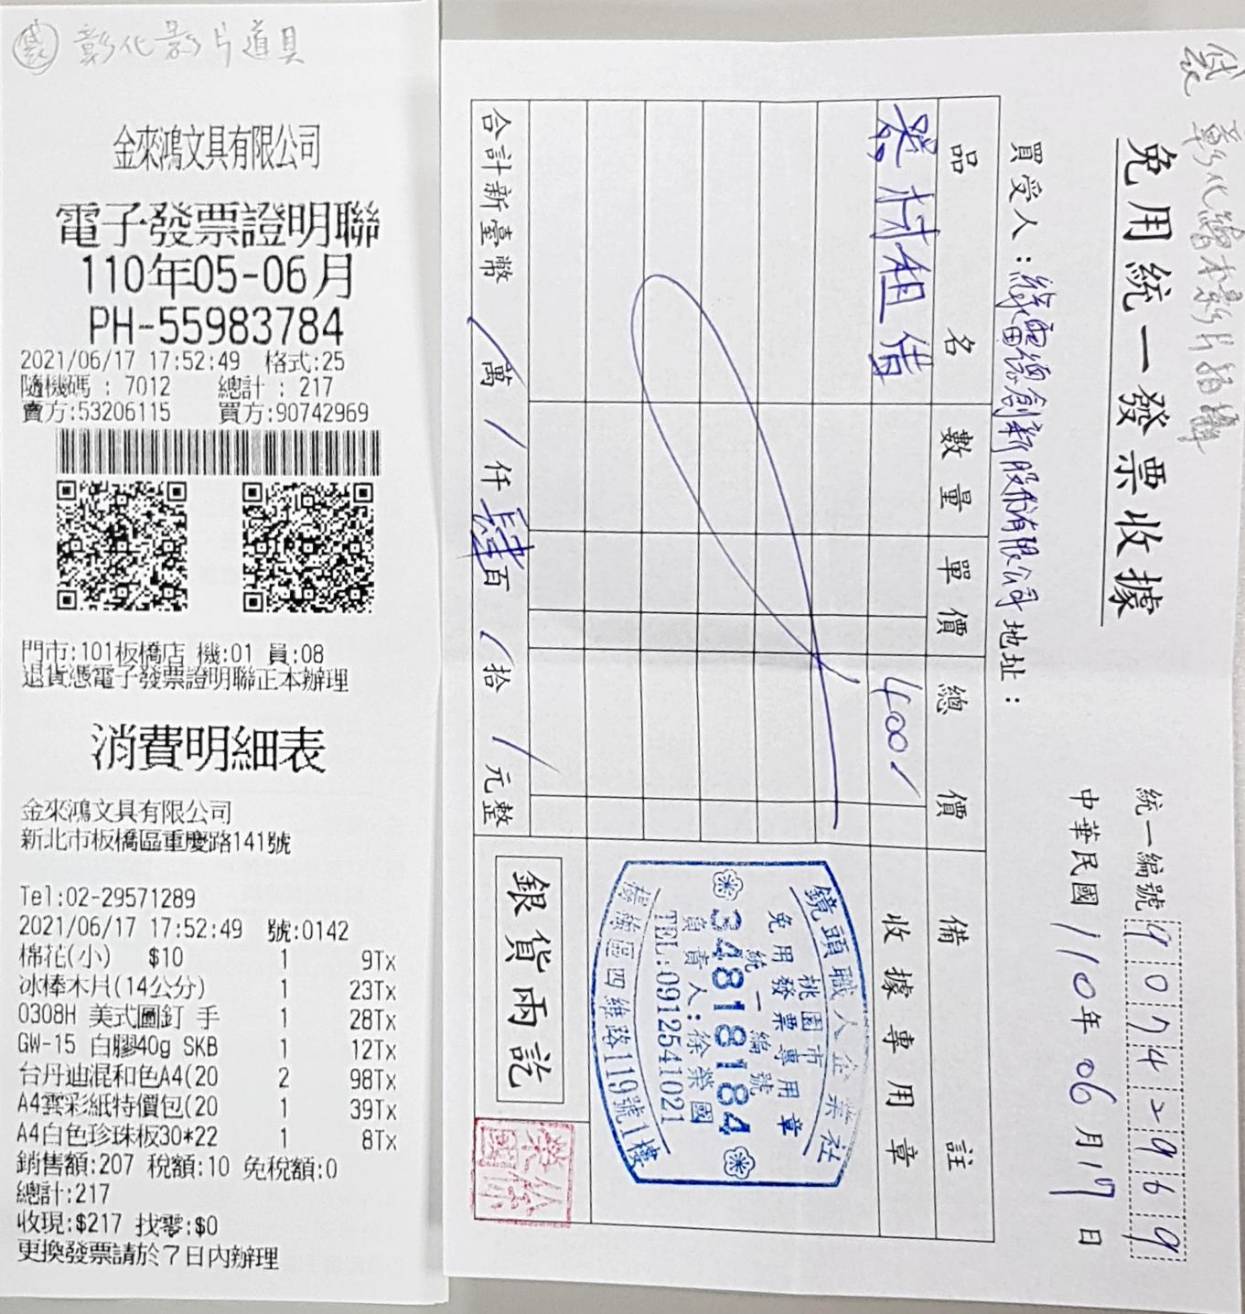 彰化影片道具
金來鴻文具有限公司
電子發票證明聯
110年05-06月
PH-55983784
2021/06/17 17:52:49 格式:25
隨機碼 : 7012 總計 : 217
賣方:53206115 買方:90742969
門市:101板橋店 機:01 員:08
退貨憑電子發票證明聯正本辦理
消費明細表
金來鴻文具有限公司
新北市板橋區重慶路141號
Tel:02-29571289
2021/06/17 17:52:49 號:0142
棉花(小) $10 1 9Tx
冰棒木片(14公分) 1 23Tx
0308H 美式圖釘 手 1 28Tx
GW-15 白膠40g SKB 1 12Tx
台丹迪混和色A4(20 2 98Tx
A4雲彩紙特價包(20 1 39Tx
A4白色珍珠板30*22 1 8Tx
銷售額:207 稅額:10 免稅額:0
總計:217
收現:$217 找零:$0
更換發票請於7日內辦理
彰化繪本影片拍攝
免用統一發票收據
統一編號 90742969
中華民國110年06月17日
買受人:綠電創新股份有限公司 地址:
品名 數量 單價 總價 備註
器材租借 400/
收據專用章
鏡頭職人企業社
桃園市
免用發票專用章
統一編號
34818184
負責人:徐榮國
TEL:0912541021
楊梅區四維路119號1樓
銀貨兩訖
合計新臺幣 / 萬 / 仟 肆 百 / 拾 / 元整